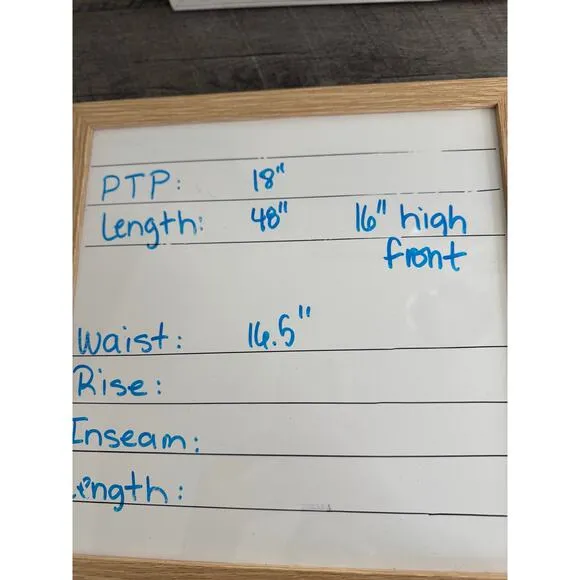 PTP: 18"
Length: 48" 16" high
front
Waist: 16.5"
Rise:
Inseam:
Length: